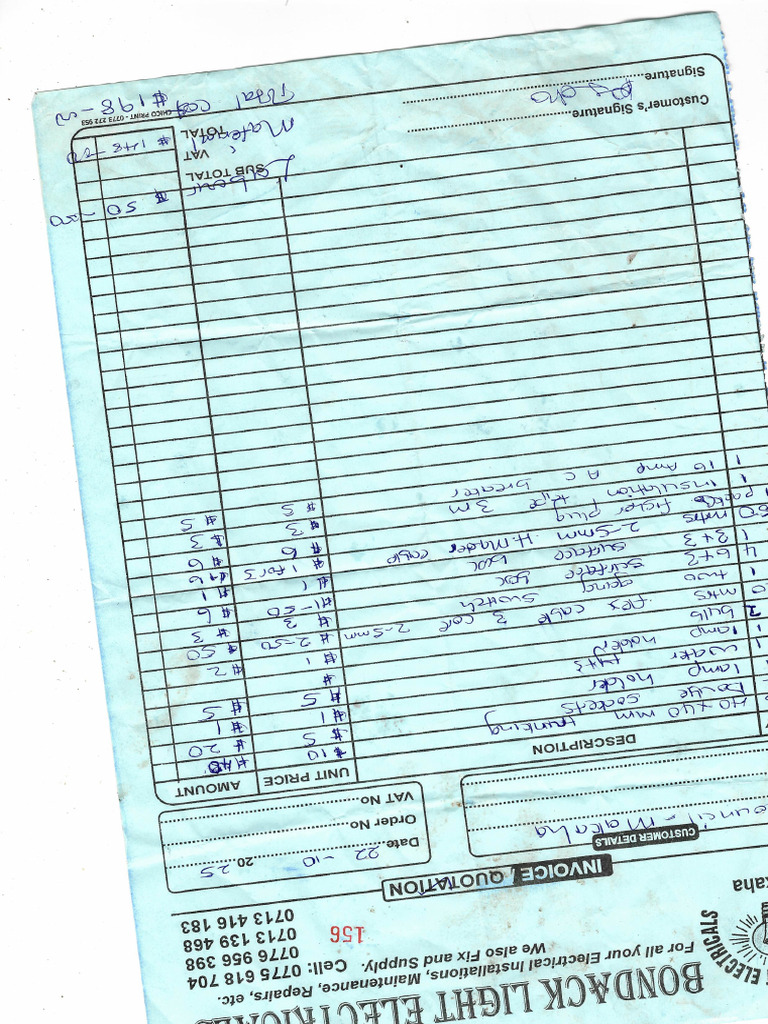 BONDACK LIGHT ELECTRICALS
For all your Electrical Installations, Maintenance, Repairs, etc.
We also Fix and Supply. Cell: 0775 618 704
0776 956 398
0713 139 468
0713 416 183
ELECTRICALS
156
INVOICE / QUOTATION
CUSTOMER DETAILS
ouncil - Makaha
Date 22-10 20 25
Order No
VAT No
DESCRIPTION UNIT PRICE AMOUNT
40 x 40 mm trunking $10 $40
Double sockets $5 $20
lamp holder $1 $1
$5 $5
lamp holder $
2 bulb $1 $2
mtrs flex cable 3 core 2-5mm $2-50 $50
1 two gang switch $3 $3
4 6+3 surface box $1-50 $6
1 3+3 surface box $1 $1
mtrs 2-5mm cable $1 for 3 $16
packts ficher plug $6 $6
1 insulation tape 3m $3 $3
1 16 Amp A C breaker $5 $5
SUB TOTAL Labour $50-00
VAT Material $148-00
TOTAL
Customer's Signature
Signature
CHICO PRINT - 0773 272 953
Total cost $198-00